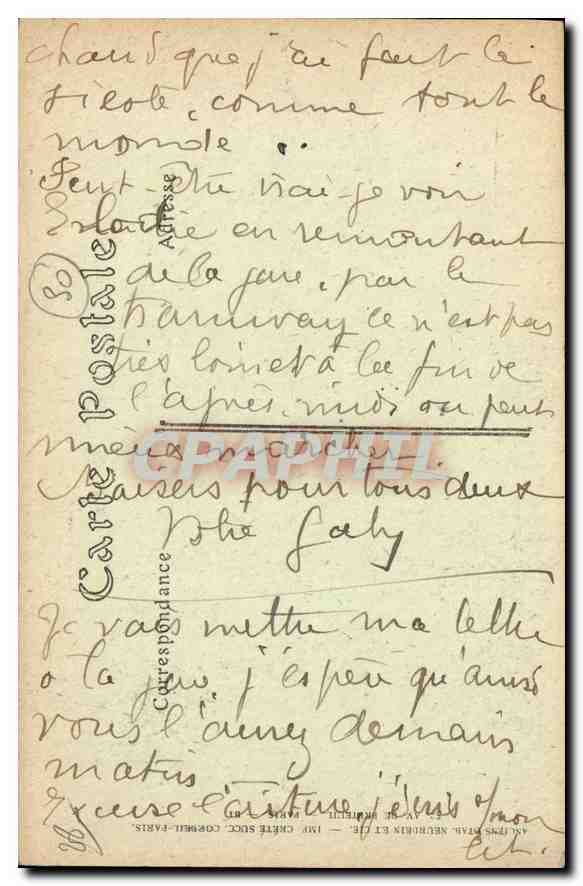 chaud que j'ai fait la
sieste, comme tout le
monde ..
Peut-être irai-je voir
en remontant
de la gare, par le
tramway ce n'est pas
très loin et à la fin de
l'après-midi on peut
mieux marcher
Baisers pour tous deux
Votre Gaby
Je vais mettre ma lettre
à la gare, j'espère qu'ainsi
vous l'aurez demain
matin
Excuse l'écriture j'écris s/mon
lit.
Carte Postale
Correspondance
Adresse
80
CPARPHIL
ANCIENS ETAB. NEURDEIN ET CIE. — IMP. CRÉTÉ SUCC. CORBEIL-PARIS.
52, AV. DE BRETEUIL PARIS.